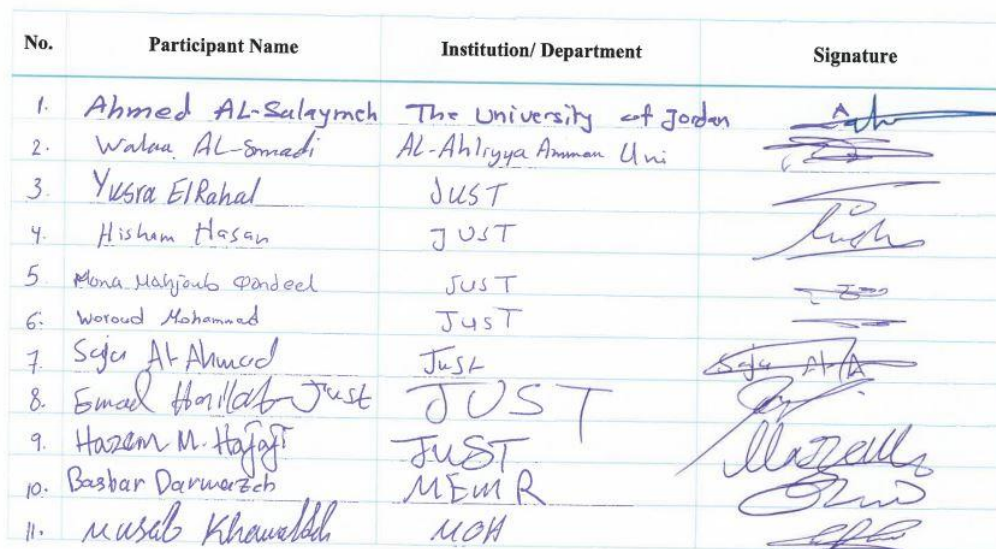 No. Participant Name Institution/ Department Signature
1. Ahmed AL-Salaymeh The University of Jordan
2. Walaa AL-Smadi AL-Ahliyya Amman Uni
3. Yusra ElRahal JUST
4. Hisham Hasan JUST
5. Mona Mahjoub Qandeel JUST
6. Woroud Mohammad JUST
7. Saja Al-Ahmad Just Saja Al-A
8. Emad Just JUST
9. Hazem M. JUST
10. Basbar Darwazeh MEMR
11. Musab MOH